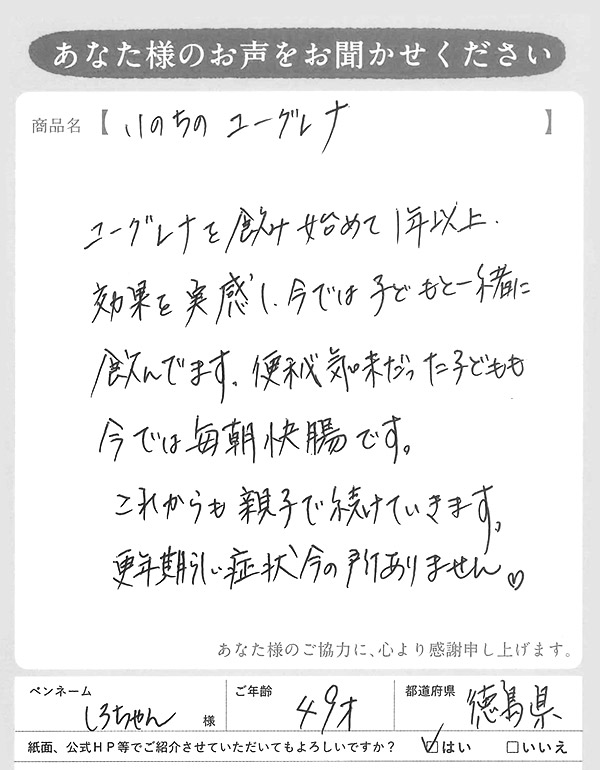 あなた様のお声をお聞かせください
商品名【いのちのユーグレナ】
ユーグレナを飲み始めて1年以上。
効果を実感し、今では子どもと一緒に
飲んでます。便秘気味だった子どもも
今では毎朝快腸です。
これからも親子で続けていきます。
更年期らしい症状今の所ありません♡
あなた様のご協力に、心より感謝申し上げます。
ペンネーム しろちゃん 様 ご年齢 49才 都道府県 徳島県
紙面、公式HP等でご紹介させていただいてもよろしいですか? ☑はい □いいえ